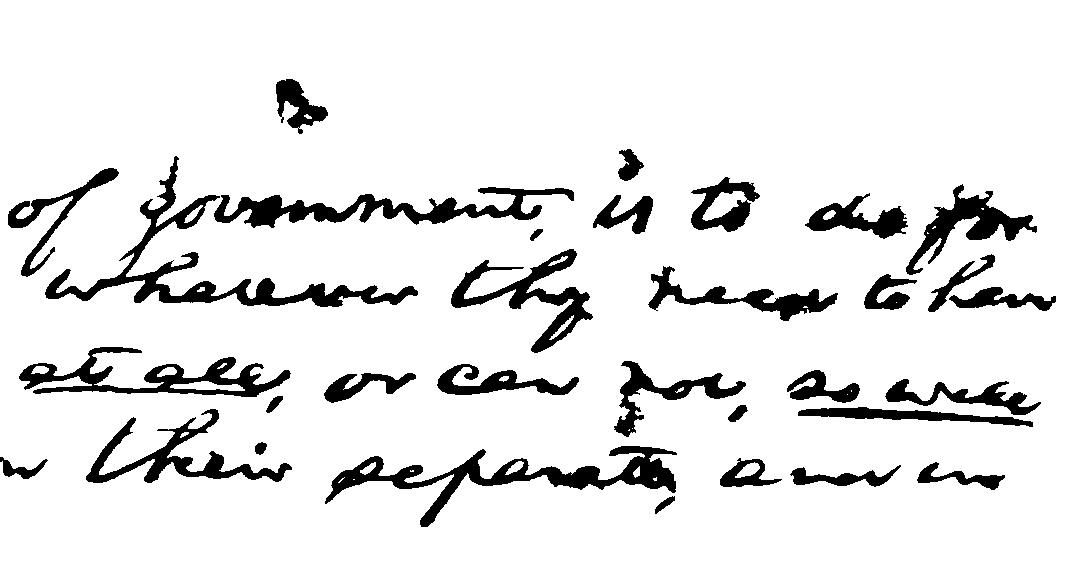 of government, is to do for
wherever they need to have
at all, or can not, so well
in their separate, and in